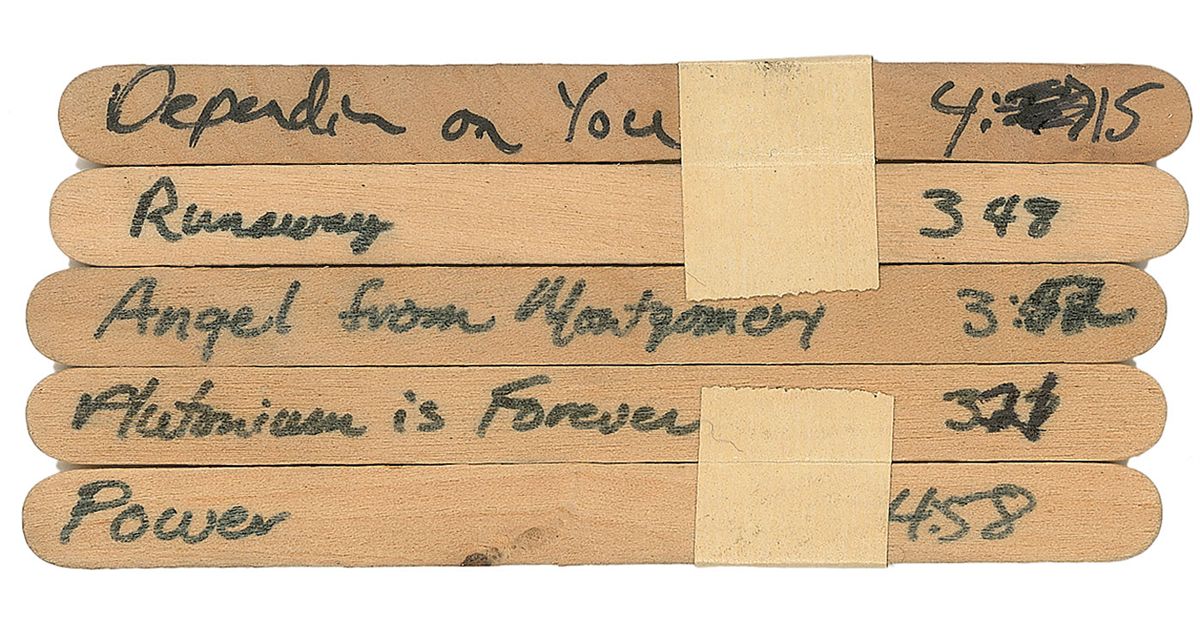 Dependin on You 4:15
Runaway 3 48
Angel from Montgomery 3:
Plutonium is Forever 321
Power 4:58